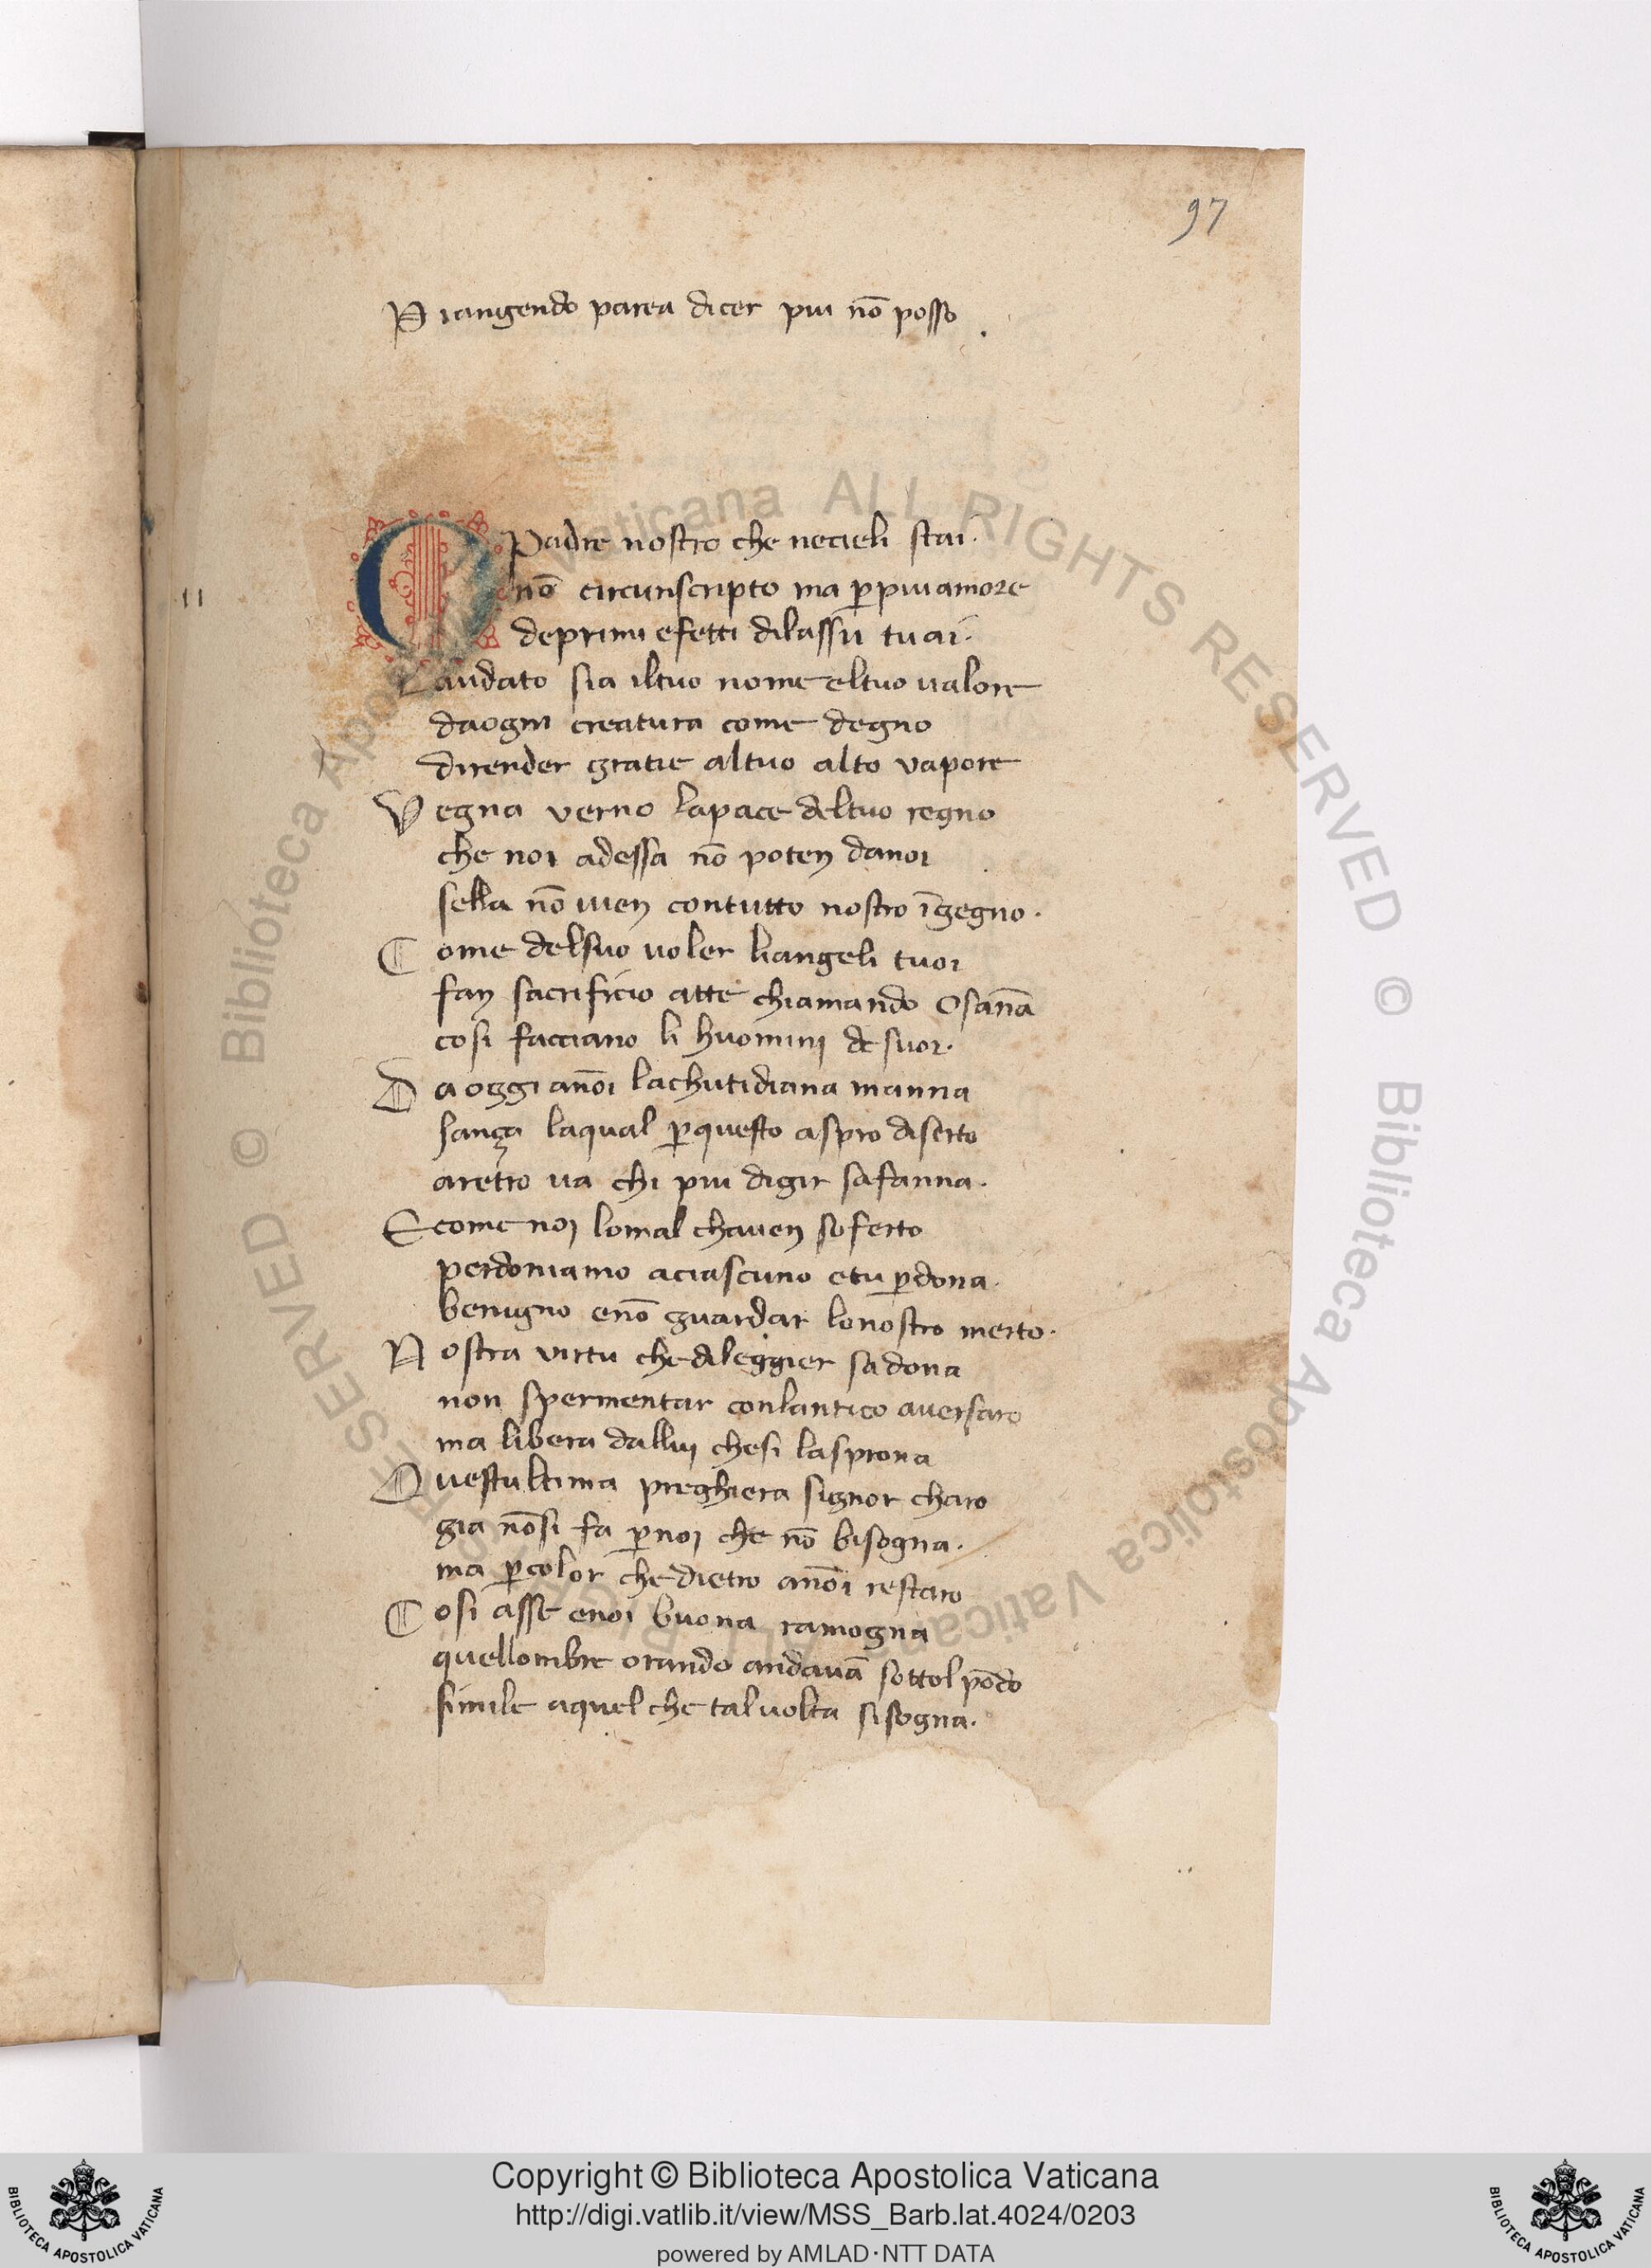 97
Piangendo parea dicer piu nō posso.
O Padre nostro che necieli stai.
11
nō circunscripto ma ꝑ piu amore
deprimi efetti dilassu tu ai.
Laudato sia iltuo nome eltuo ualore
daogni creatura come degno
direnđer gratie altuo alto vapore
Vegna verno lapace deltuo regno
che noi adessa nō poten danoi
sella nō uien contutto nostro īgegno.
Come delsuo uoler liangeli tuoi
fan sacrificio atte chiamando Osānā
cosi facciano li huomini de suoi.
Da oggi anōi lachutidiana manna
sança laqual ꝑquesto aspro diserto
aretro ua chi piu digir safanna.
Ecome noi lomal chauen soferto
perdoniamo aciascuno etu ꝑdona.
benigno enō guardar lonostro merto.
Nostra virtu che dileggier sadona
non spermentar conlantico auersaro
ma libera dallui chesi lasprona
Questultima preghiera signor charo
gia nōsi fa ꝑnoi che nō bisogna.
ma ꝑcolor che dietro anōi restaro
Cosi asse enoi buona ramogna
quellombre orando andauā sottol pōdo
simile aquel che taluolta sisogna.
Copyright © Biblioteca Apostolica Vaticana
http://digi.vatlib.it/view/MSS_Barb.lat.4024/0203
powered by AMLAD·NTT DATA
BIBLIOTECA APOSTOLICA VATICANA
BIBLIOTECA APOSTOLICA VATICANA
© Biblioteca Apostolica Vaticana ALL RIGHTS RESERVED © Biblioteca Apostolica Vaticana ALL RIGHTS RESERVED